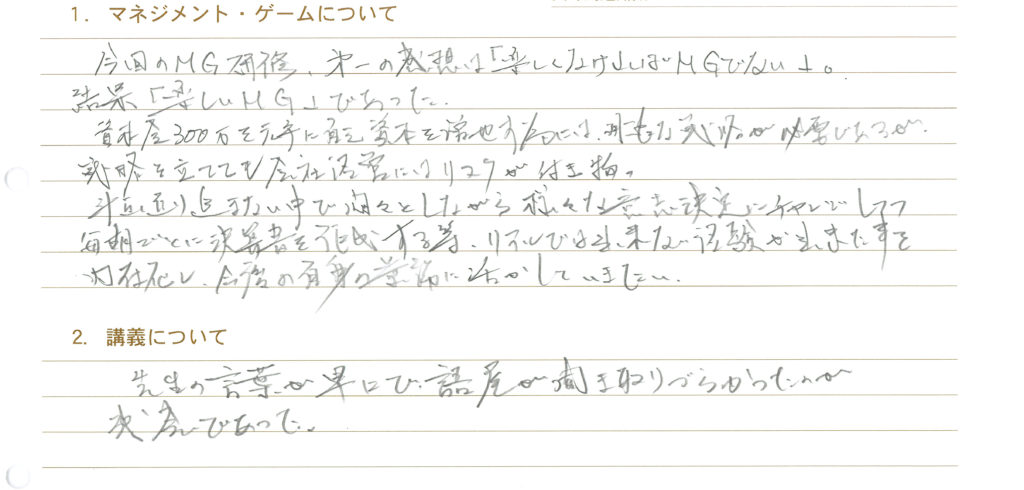 1. マネジメント・ゲームについて
今回のMG研修、第一の感想は「楽しくなければMGでない」。
結果「楽しいMG」であった。
資本金300万を元手に自己資本を増やす為には、戦略が必要であるが、
戦略を立てても会社経営にはリスクが付き物。
計画通り進まない中で悶々としながら様々な意思決定にチャレンジしつつ
毎期ごとに決算書を作成する等、リアルでは出来ない経験が出来た事を
内在化し、今後の自身の業務に活かしていきたい。
2. 講義について
先生の言葉が早口で語尾が聞き取りづらかったのが
残念であった。